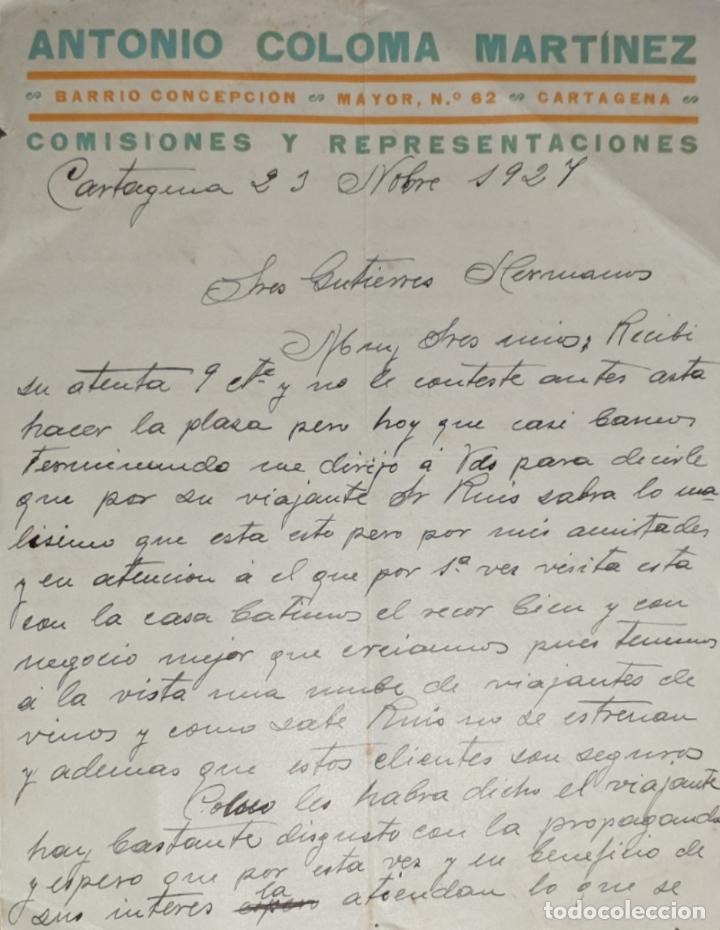 ANTONIO COLOMA MARTÍNEZ
BARRIO CONCEPCIÓN MAYOR, N.º 62 CARTAGENA
COMISIONES Y REPRESENTACIONES
Cartagena 23 Nobre 1927
Sres Gutierres Hermanos
Muy Sres mios; Recibi
su atenta 9 cte y no le conteste antes asta
hacer la plasa pero hoy que casi bamos
terminando me dirijo á Vds para decirle
que por su viajante Sr Ruis sabra lo ma
lisimo que esta esto pero por mis amistades
y en atencion á el que por 1ª ves visita esta
con la casa batimos el recor bien y con
negocio mejor que creiamos pues tenemos
á la vista una nube de viajantes de
vinos y como sabe Ruis no se estrenan
y ademas que estos clientes son seguros
Como les habra dicho el viajante
hay bastante disgusto con la propaganda
y espero que por esta ves y en beneficio de
sus interes la atiendan lo que se
todocoleccion
todocoleccion.net